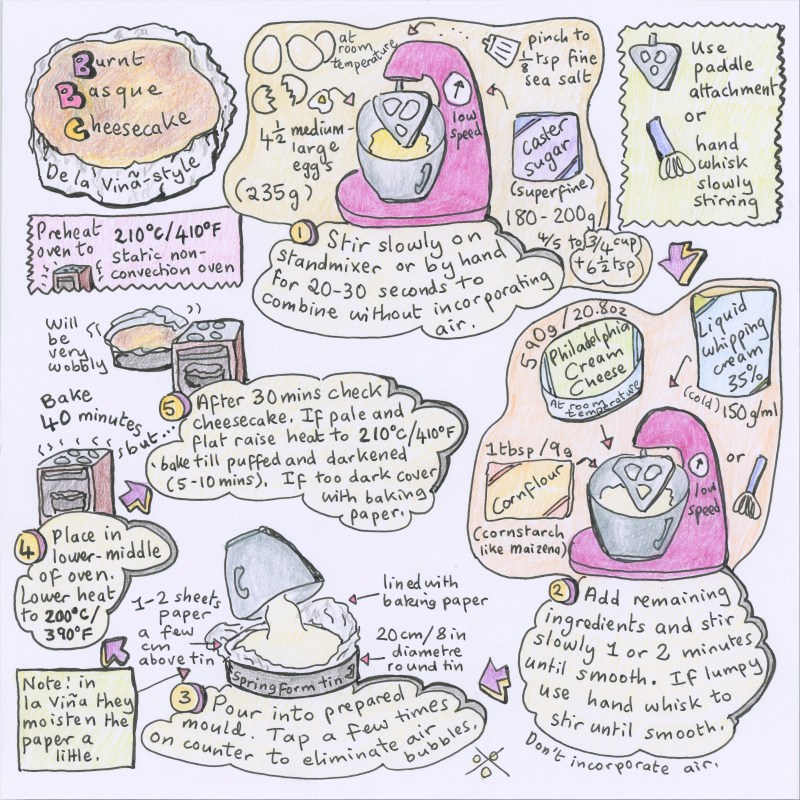 Burnt
Basque
Cheesecake
De la Viña-style
Preheat
oven to
210°C/410°F
Static non-
convection oven
at
room
temperature
4 1/2 medium-
large
eggs
(235g)
low
speed
pinch to
1/8 tsp fine
sea salt
caster
sugar
(superfine)
180-200g
4/5 to 3/4 cup
+ 6 1/2 tsp
Use
paddle
attachment
or
hand
whisk
slowly
stirring
1 Stir slowly on
standmixer or by hand
for 20-30 seconds to
combine without incorporating
air.
590g/20.8oz
Philadelphia
Cream
Cheese
At room
temperature
Liquid
whipping
cream
35%
(cold) 150g/ml
1tbsp/9g
Cornflour
(cornstarch
like maizena)
low
speed
or
2 Add remaining
ingredients and stir
slowly 1 or 2 minutes
until smooth. If lumpy
use hand whisk to
stir until smooth.
Don't incorporate air.
lined with
baking paper
20cm/8in
diametre
round tin
1-2 sheets
paper
a few
cm
above tin
Springform tin
3 Pour into prepared
mould. Tap a few times
on counter to eliminate air
bubbles.
Note! in
la Viña they
moisten the
paper a
little.
4 Place in
lower-middle
of oven.
Lower heat
to 200°C/
390°F
Bake
40 minutes
but...
5 After 30 mins check
cheesecake. If pale and
flat raise heat to 210°C/410°F
bake till puffed and darkened
(5-10 mins). If too dark cover
with baking
paper.
Will
be
very
wobbly